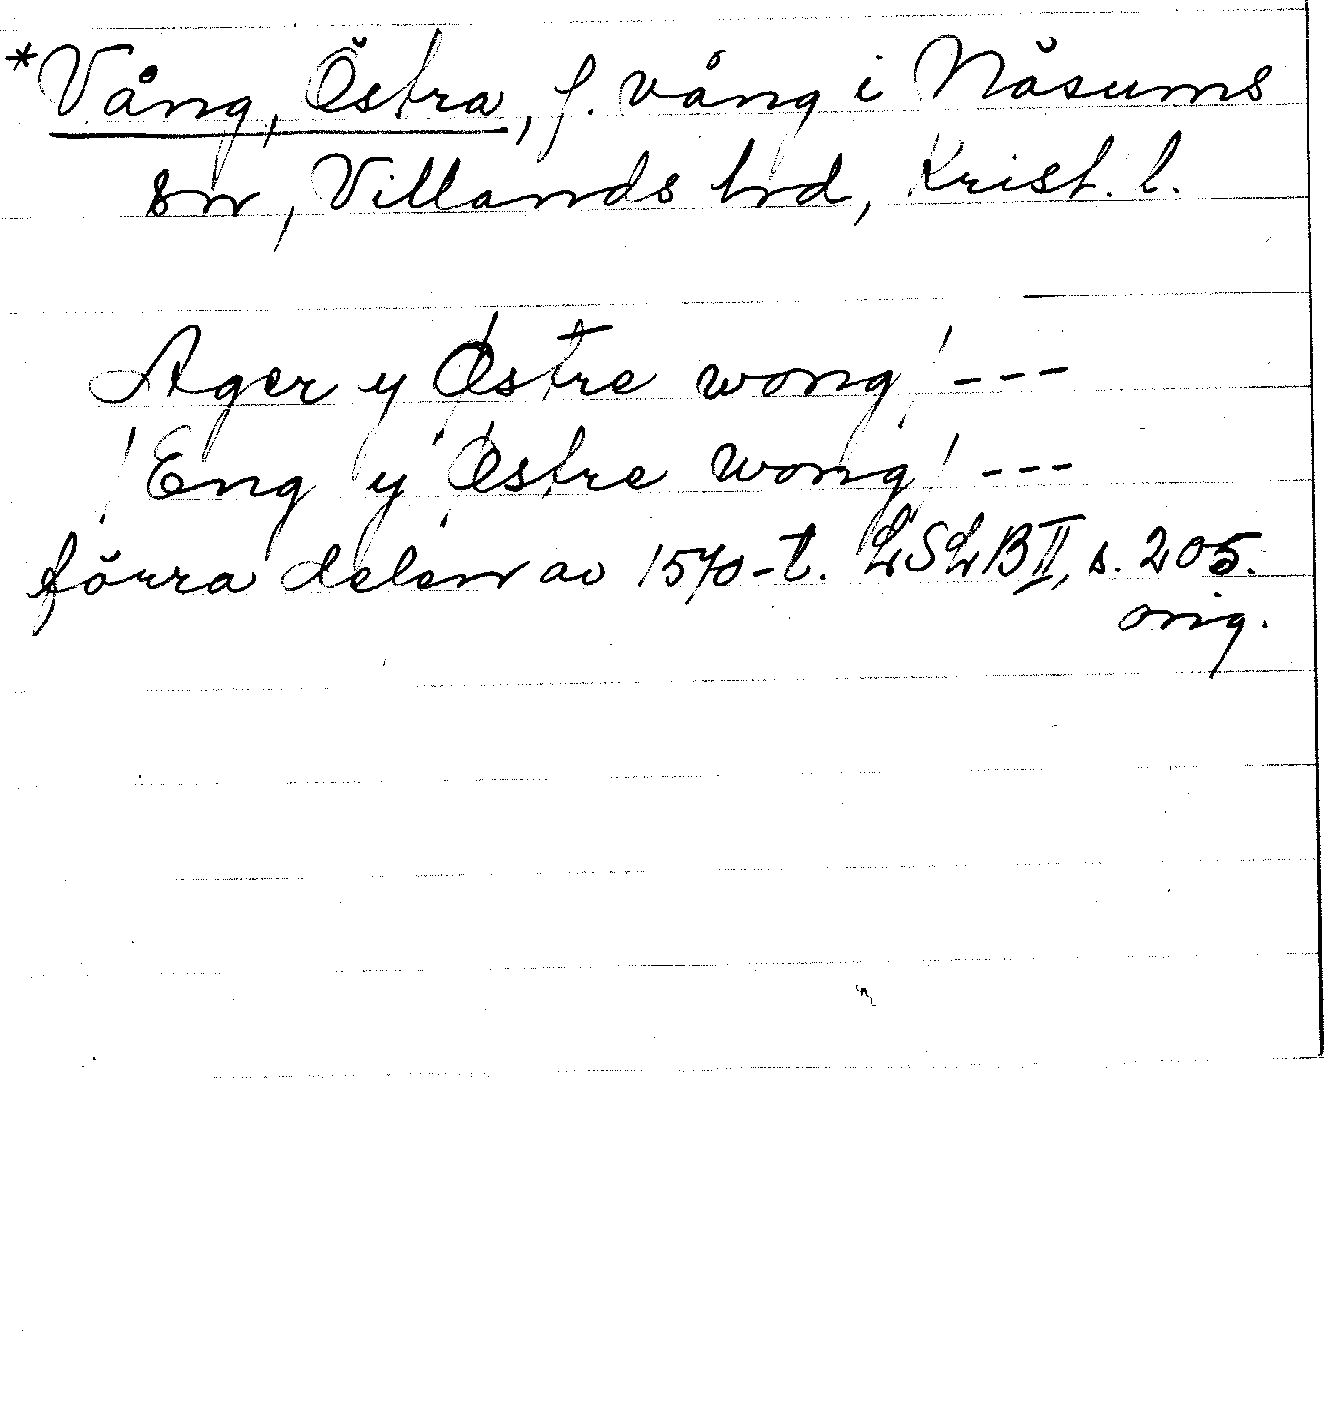 *Vång, Östra, f. vång i Näsums
sn, Villands hrd, Krist. l.
Ager y Østre wong! ---
! Eng y Østre wong! ---
förra delen av 1570-t. LSLB II, s. 205.
orig.